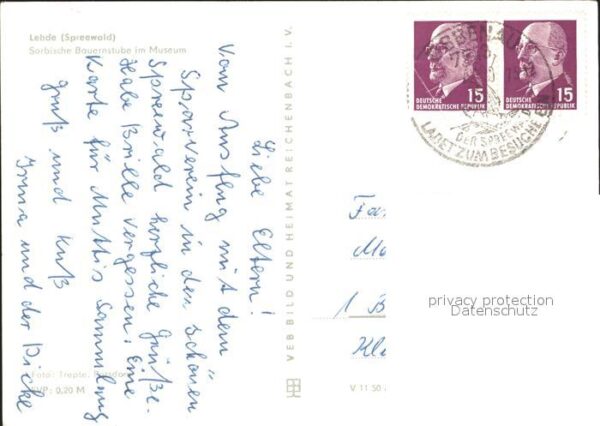 Lehde (Spreewald)
Sorbische Bauernstube im Museum
Liebe Eltern!
Vom Ausflug mit dem
Sparverein in den schönen
Spreewald herzliche Grüße.
Habe Brille vergessen. Eine
Karte für Muttis Sammlung
Gruß und Kuß
Inna und der Dicke
Foto: Trepte,
EVP: 0,20 M
VEB BILD UND HEIMAT REICHENBACH I. V.
V 11 50
DEUTSCHE
DEMOKRATISCHE REPUBLIK
15
DEUTSCHE
DEMOKRATISCHE REPUBLIK
15
LÜBBENAU
DER SPREEWALD
LADET ZUM BESUCHE EIN
Fa
1 B
Kl
privacy protection
Datenschutz